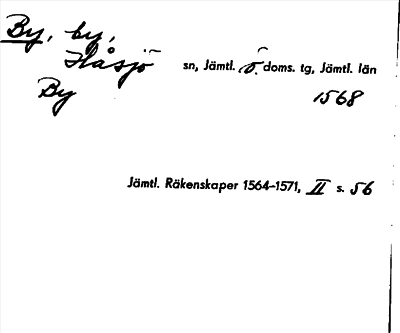 By, by,
Håsjö sn, Jämtl. ö. doms. tg, Jämtl. län
By 1568
Jämtl. Räkenskaper 1564-1571, II s. 56